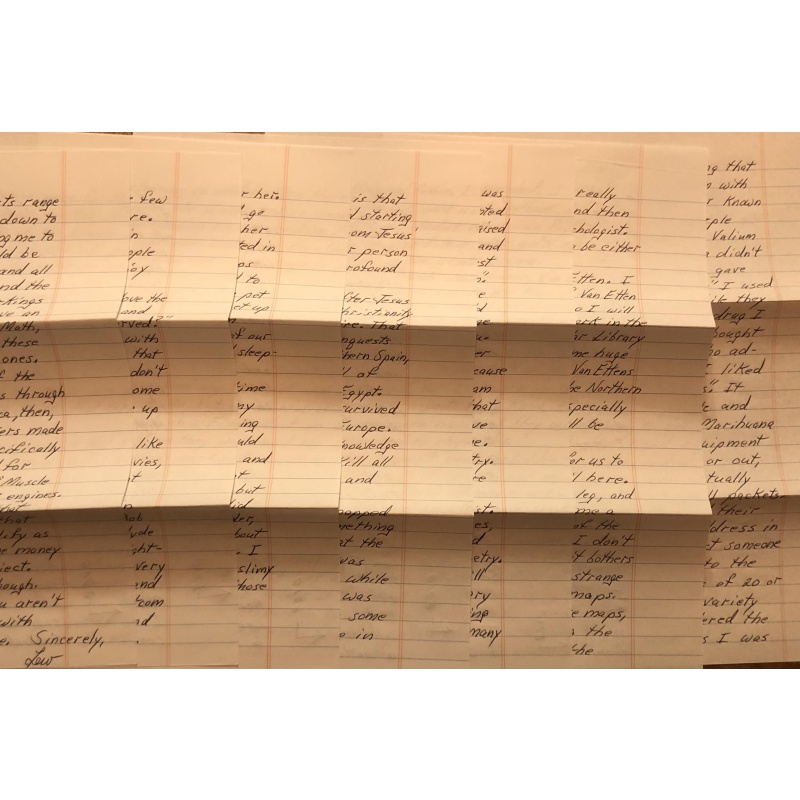 ts range
down to
ng me to
ld be
and all
nd the
-Kings
ve an
Math,
these
ones.
f the
s through
ca, then,
ers made
cifically
for
Muscle
engines.
but
that
lify as
e money
ject.
hough.
u aren't
with
e. Sincerely,
Lew
few
re.
in
ople
oy
ove the
and
rved?"
with
that
don't
ome
up
like
vies,
t
ob
vde
ght-
very
and
from
nd
r her.
ge
her
ted in
os
to
pet
et up
if our
sleep-
time
ny
ing
uld
and
t
but
did
ter,
bout
. I
slimy
hose
is that
d starting
om Jesus'
r person
rofound
fter Jesus
hristianity
re. That
nquests
hern Spain,
l of
Egypt.
urvived
Europe.
nowledge
till all
and
apped
mething
at the
was
while
was
some
e in
was
ated
vised
and
st
".
e
we
ue.
er
cause
am
hat
ve
e.
try.
re
st.
es,
d
etry.
ll
ry
ing
many
really
nd then
chologist.
be either
Etten. I
Van Etten
o I will
ork in the
ir Library
me huge
Van Ettens
he Northern
specially
ll be
for us to
l here.
leg, and
me a
of the
I don't
't bothers
strange
maps.
e maps,
the
the
ng that
with
r Known
ple
Valium
didn't
gave
" I used
ik they
drug I
hought
no ad-
I liked
s" It
and
Marihuana
uipment
or out,
tually
l packets.
their
dress in
t someone
to the
of 20 or
variety
ered the
s I was